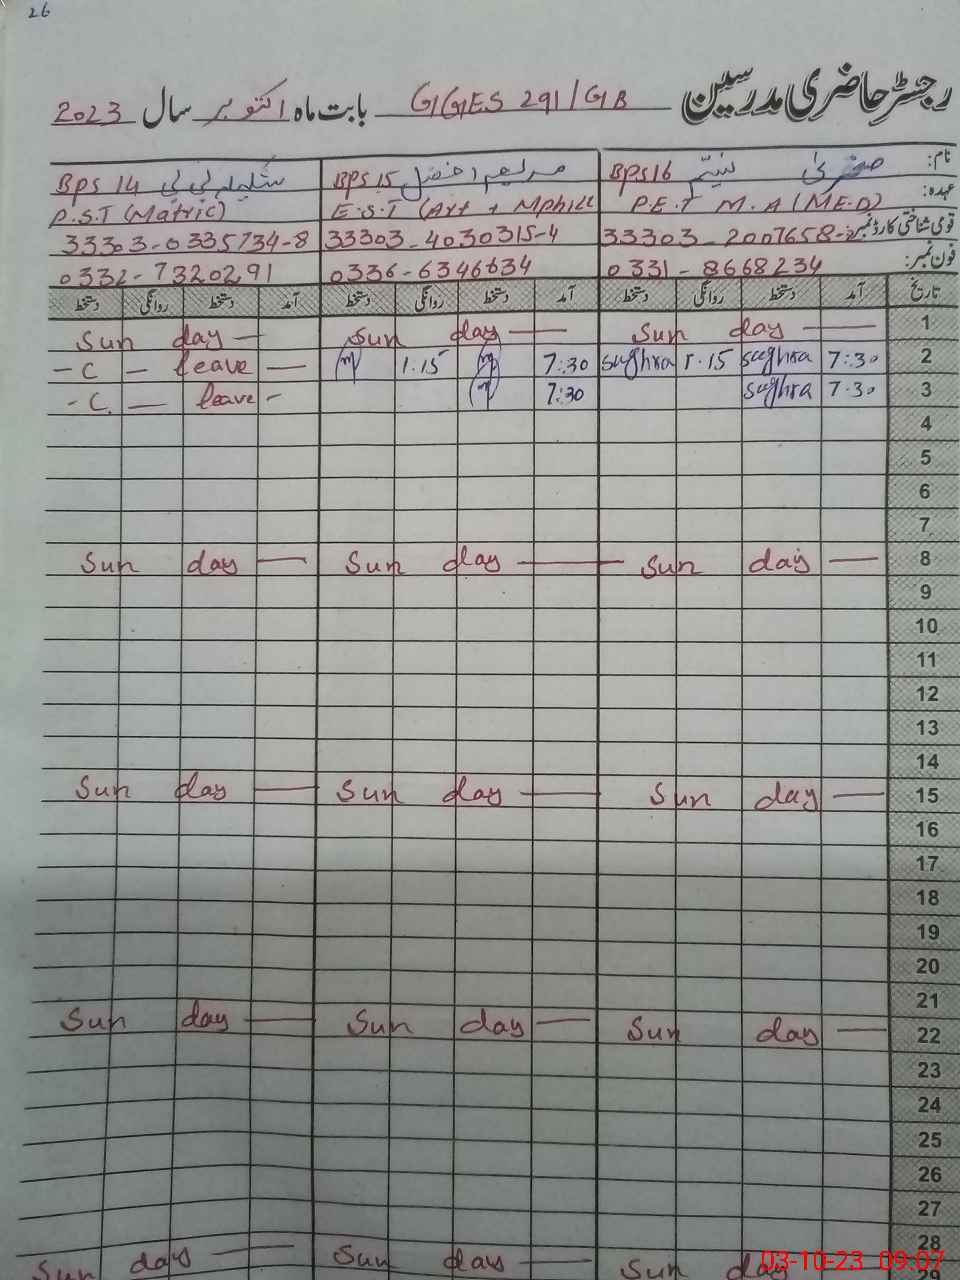 26
رجسٹر حاضری مدرسین GGES 291/GB بابت ماہ اکتوبر سال 2023
نام: صغریٰ BPS 16 مریم افضل BPS 15 بی بی BPS 14
عہدہ: P.E.T M.A (M.E.D) E.S.T (Art + Mphill P.S.T (Matric)
قومی شناختی کارڈ نمبر: 33303-2007658- 33303-4030315-4 33303-0335734-8
فون نمبر: 0331-8668234 0336-6346634 0332-7320291
تاریخ آمد دستخط روانگی دستخط آمد دستخط روانگی دستخط آمد دستخط روانگی دستخط
1 Sun day — Sun day — Sun day —
2 7:30 sughra 1.15 sughra 7:30 1.15 - C — leave —
3 7.30 sughra 7:30 - C. — leave -
4
5
6
7
8 Sun day — Sun day — Sun day —
9
10
11
12
13
14
15 Sun day — Sun day — Sun day —
16
17
18
19
20
21
22 Sun day — Sun day — Sun day —
23
24
25
26
27
28
29 Sun day Sun day — Sun day —
03-10-23 09:07